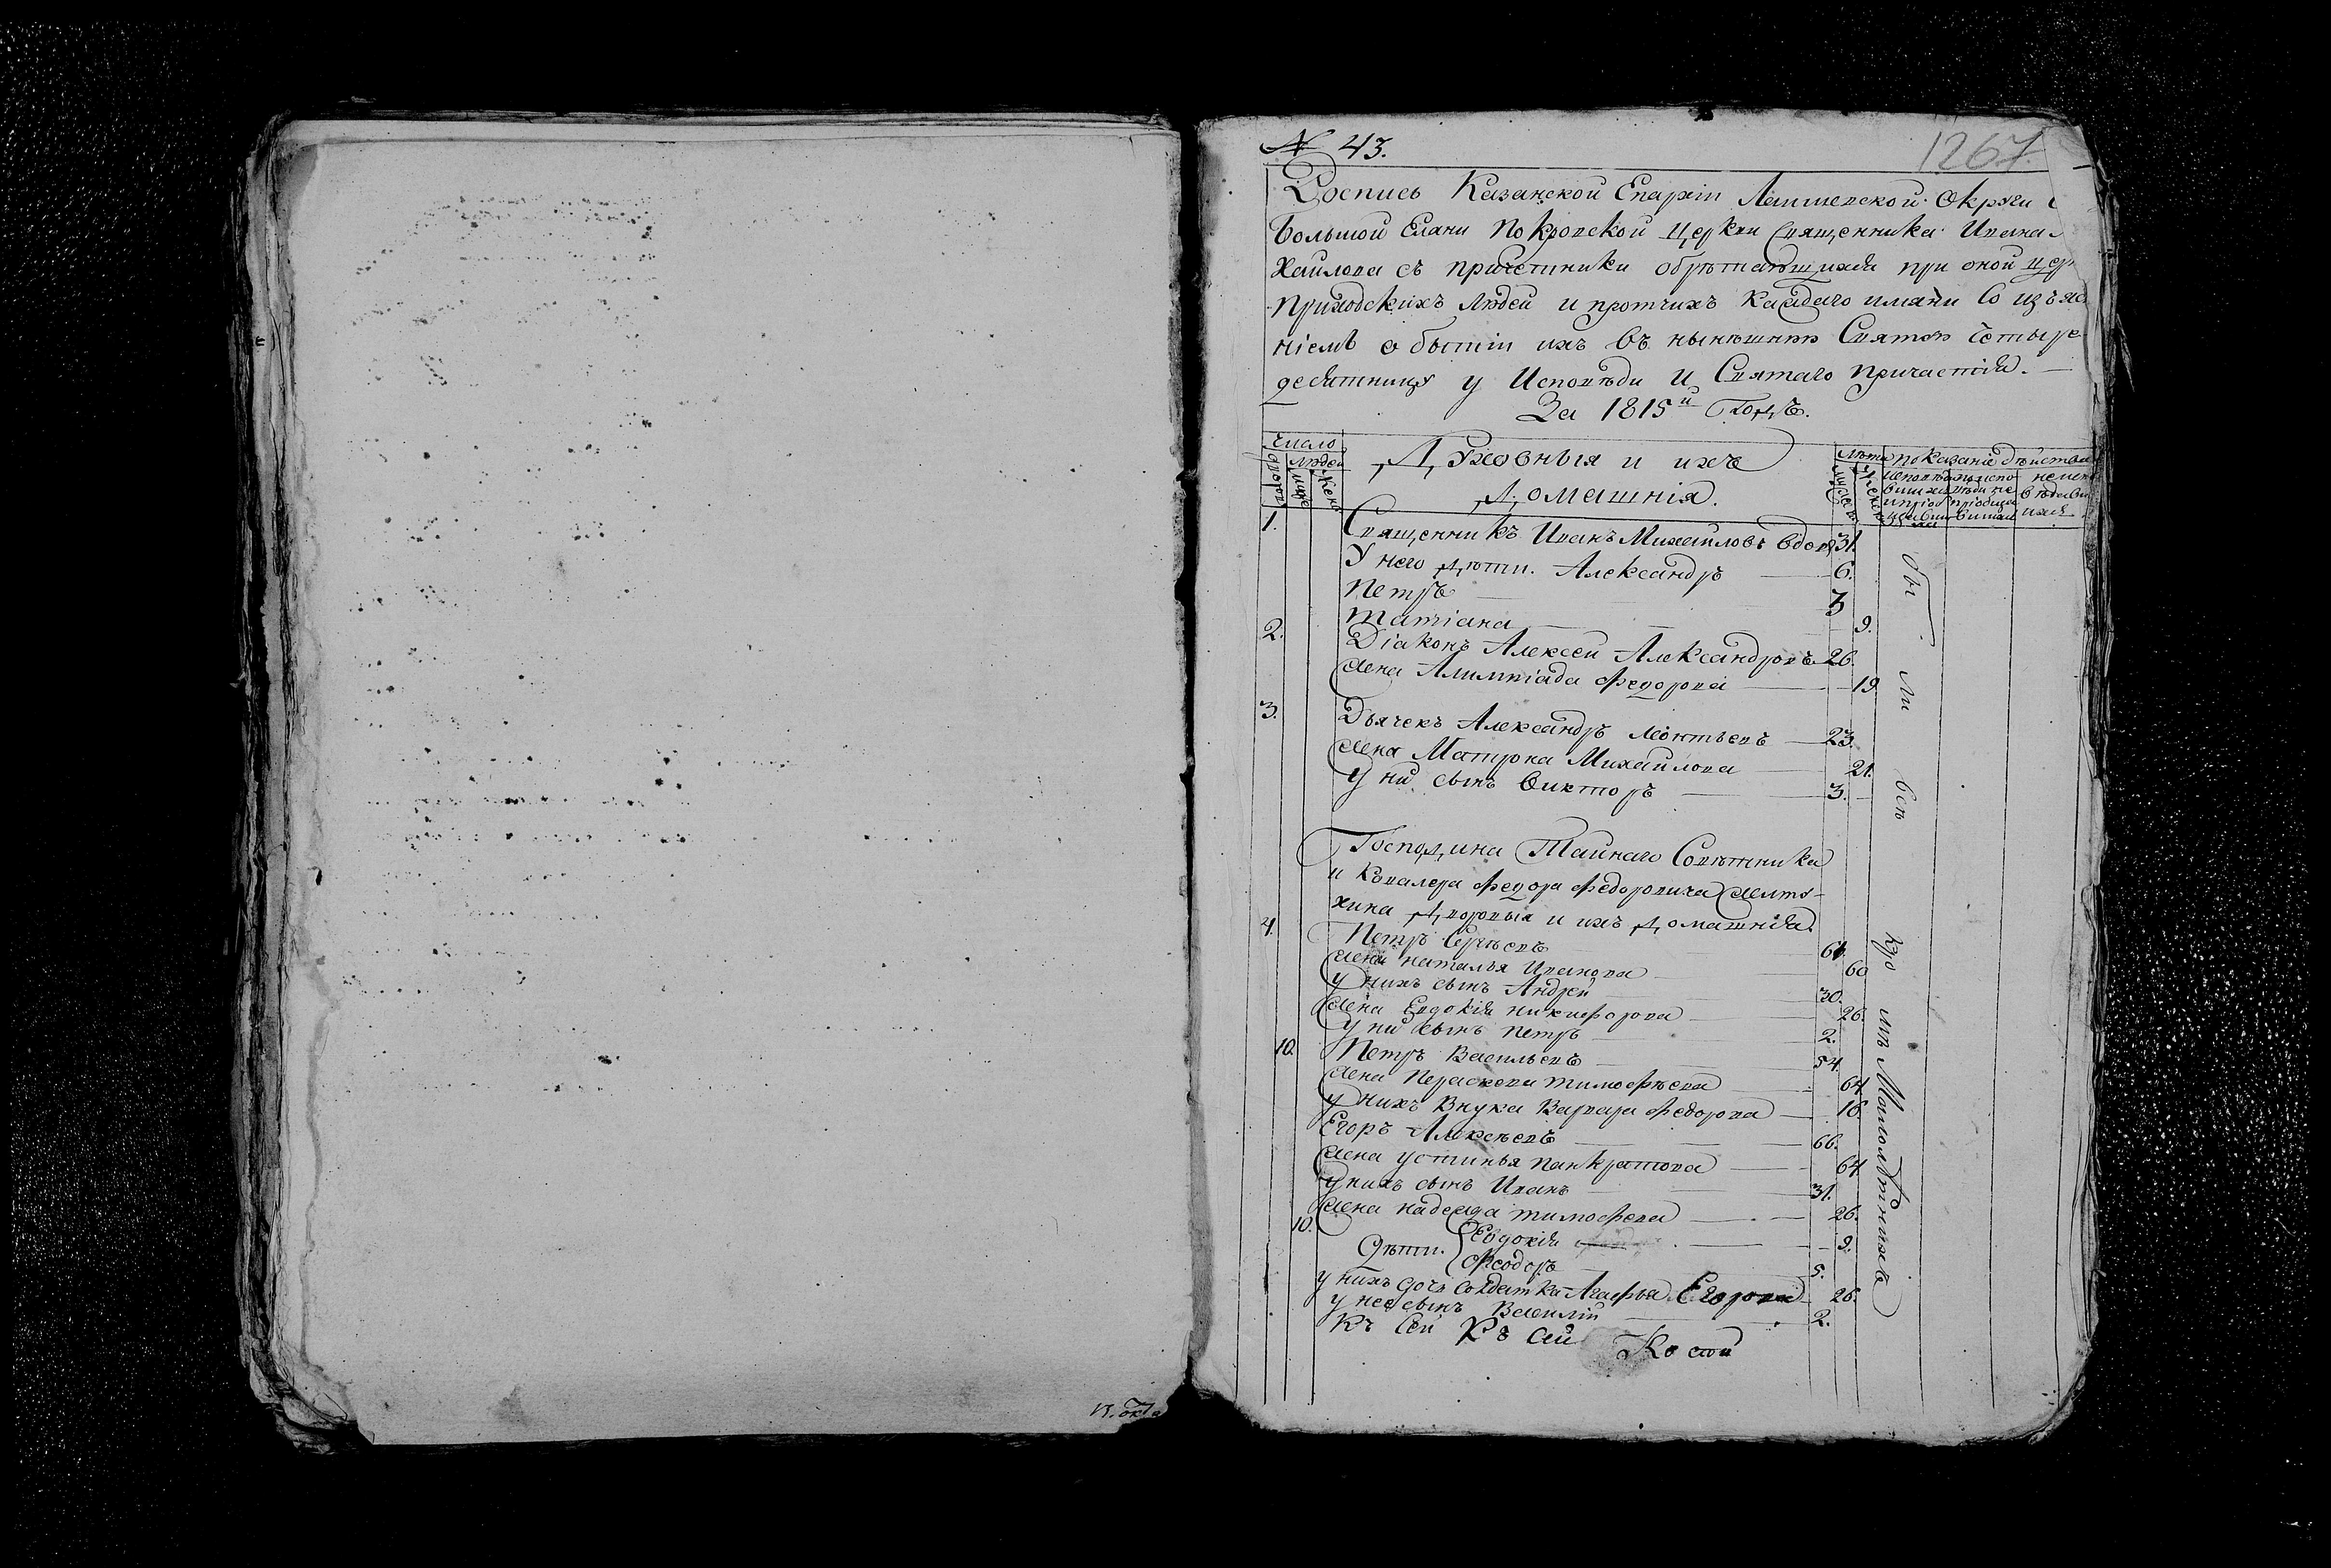 № 43.
1267
Роспись Казанской Епархіи Лаишевской Округи
Большой Елани Покровской церкви Священника Ивана
Хайлова съ причетники обрѣтающихся при оной цер
приходскихъ людей и протчихъ каждаго имяни со изъяс
ніемъ о бытіи ихъ въ нынѣшнюю Святую четыре
десятницу у Исповѣди и Святаго причастія.
За 1815й Годъ.
Число
людей
Духовныя и ихъ
Домашнія.
Лѣта
показаніе дѣйства
1. Священникъ Иванъ Михайловъ вдовъ 31.
У него дѣти. Александръ 6.
Петръ 3
Татіана 9.
2. Діаконъ Алексей Александровъ 26.
жена Алимпіада Федорова 19
3. Дьячекъ Александръ Леонтьевъ 23.
жена Матрона Михайлова 21.
у ни сынъ Викторъ 3.
Господина Тайнаго Совѣтника
и Ковалера Федора Федоровича Желту-
хина Дворовыя и ихъ Домашнія.
4. Петръ Сергѣевъ 61.
жена наталья Иванова 60
у нихъ сынъ Андрей 30.
жена Евдокія никифорова 26.
у ни сынъ петръ 2.
10. Петръ Васильевъ 54.
жена Параскева тимофѣева 64
у нихъ Внука Варвара Федорова 16
Егоръ Алексѣевъ 66.
жена устинья панкратова 64
у нихъ сынъ Иванъ 31.
жена надежда тимофева 26.
10. Дѣти. Евдокія 9.
Феодоръ 5.
у нихъ дочь солдатка Агафья Егорова 26.
у нее сынъ Василій 2.
Къ Сей Къ сей
бы ли всѣ кро мѣ Малолѣтнихъ